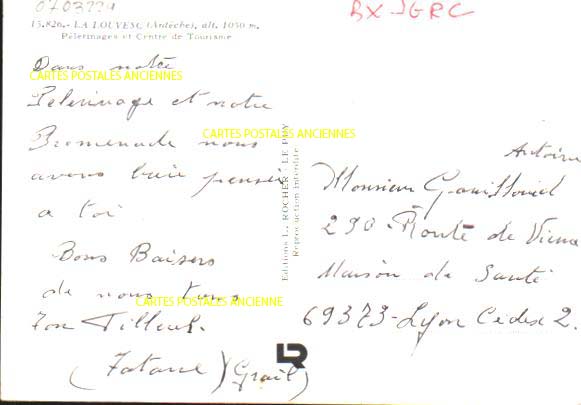 0703224
BX-JGRC
15.826. - LA LOUVESC (Ardèche), alt. 1050 m.
Pèlerinages et Centre de Tourisme
Dans notre
CARTES POSTALES ANCIENNES
Pelerinage et notre
CARTES POSTALES ANCIENNES
Promenade nous
avons bien pensé
a toi
Bons Baisers
de nous tous
CARTES POSTALES ANCIENNE
Ton Tilleul.
Editions L. ROCHER - LE PUY
Reproduction interdite
Antoine
Monsieur
290 - Route de Vienne
Maison de Santé
69373 - Lyon Cedex 2.
LR